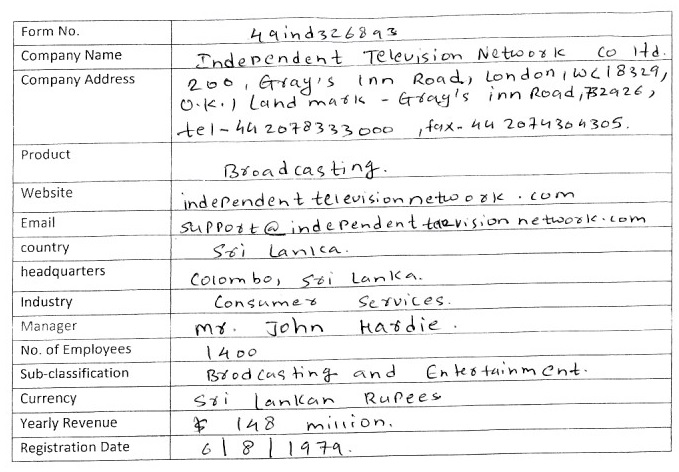 Form No. 49ind326893
Company Name Independent Television Network co ltd.
Company Address 200, Gray's Inn Road, London, WC18329,
U.K.) Land mark - Gray's inn Road, B2926,
tel - 44 2078333000 , fax - 44 2074304305.
Product Broadcasting.
Website independenttelevisionnetwoork.com
Email support@independenttelevisionnetwork.com
country Sri Lanka.
headquarters Colombo, Sri Lanka.
Industry Consumer Services.
Manager Mr. John Hardie.
No. of Employees 1400
Sub-classification Brodcasting and Entertainment.
Currency Sri lankan Rupees
Yearly Revenue $ 148 million.
Registration Date 6/8/1979.